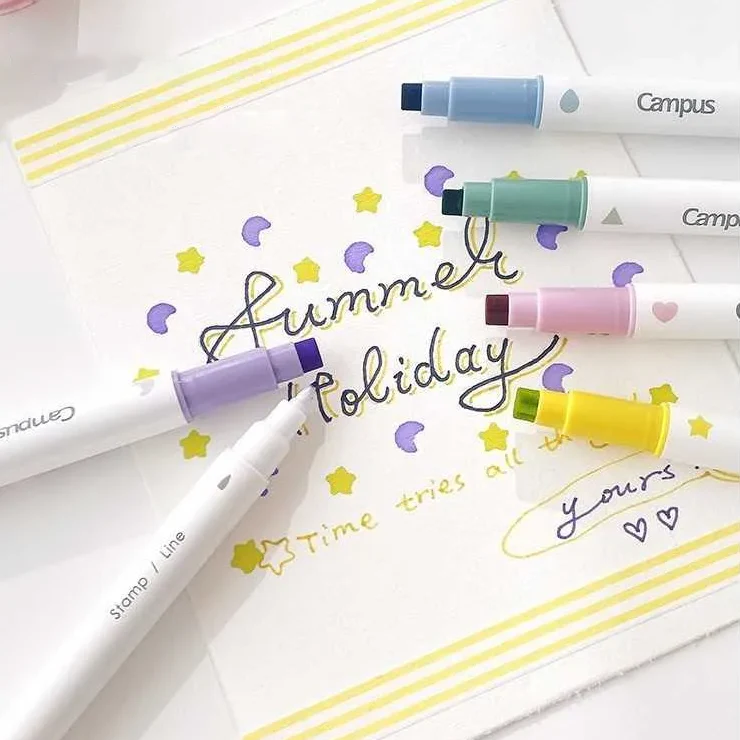 Campus
Camp
Summer
Holiday
Campus
Time tries all th
yours.
Stamp / Line